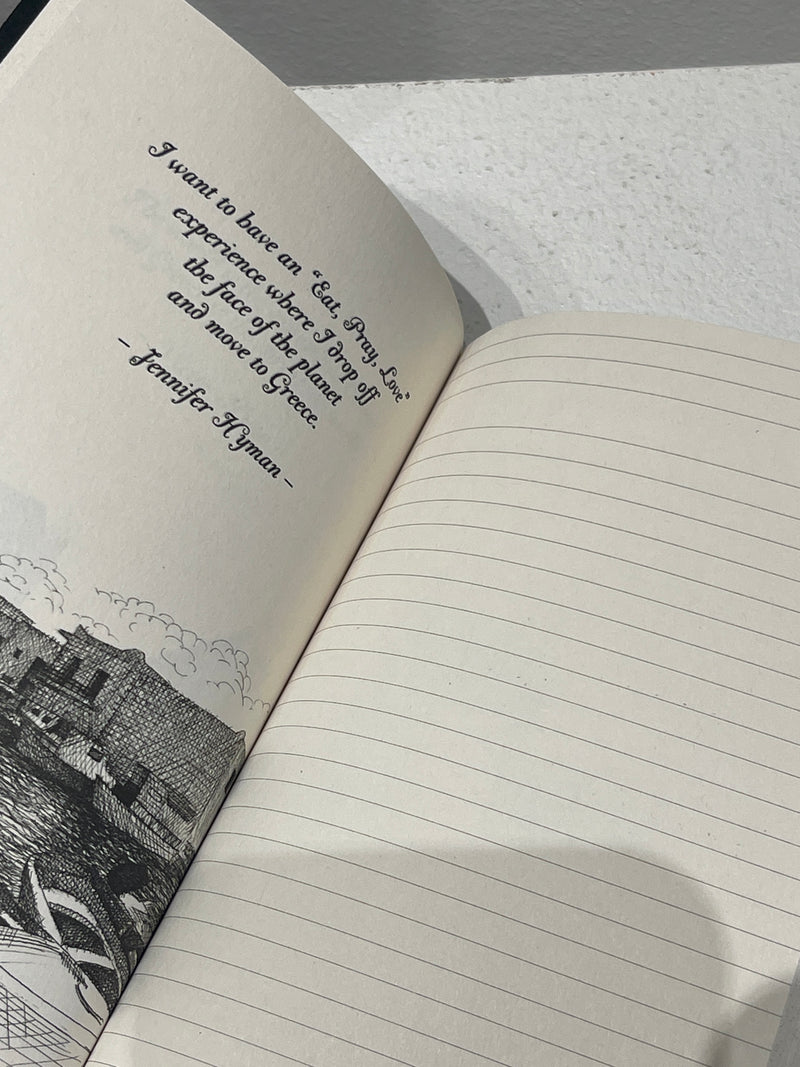 I want to have an “Eat, Pray, Love”
experience where I drop off
the face of the planet
and move to Greece.
– Jennifer Hyman –